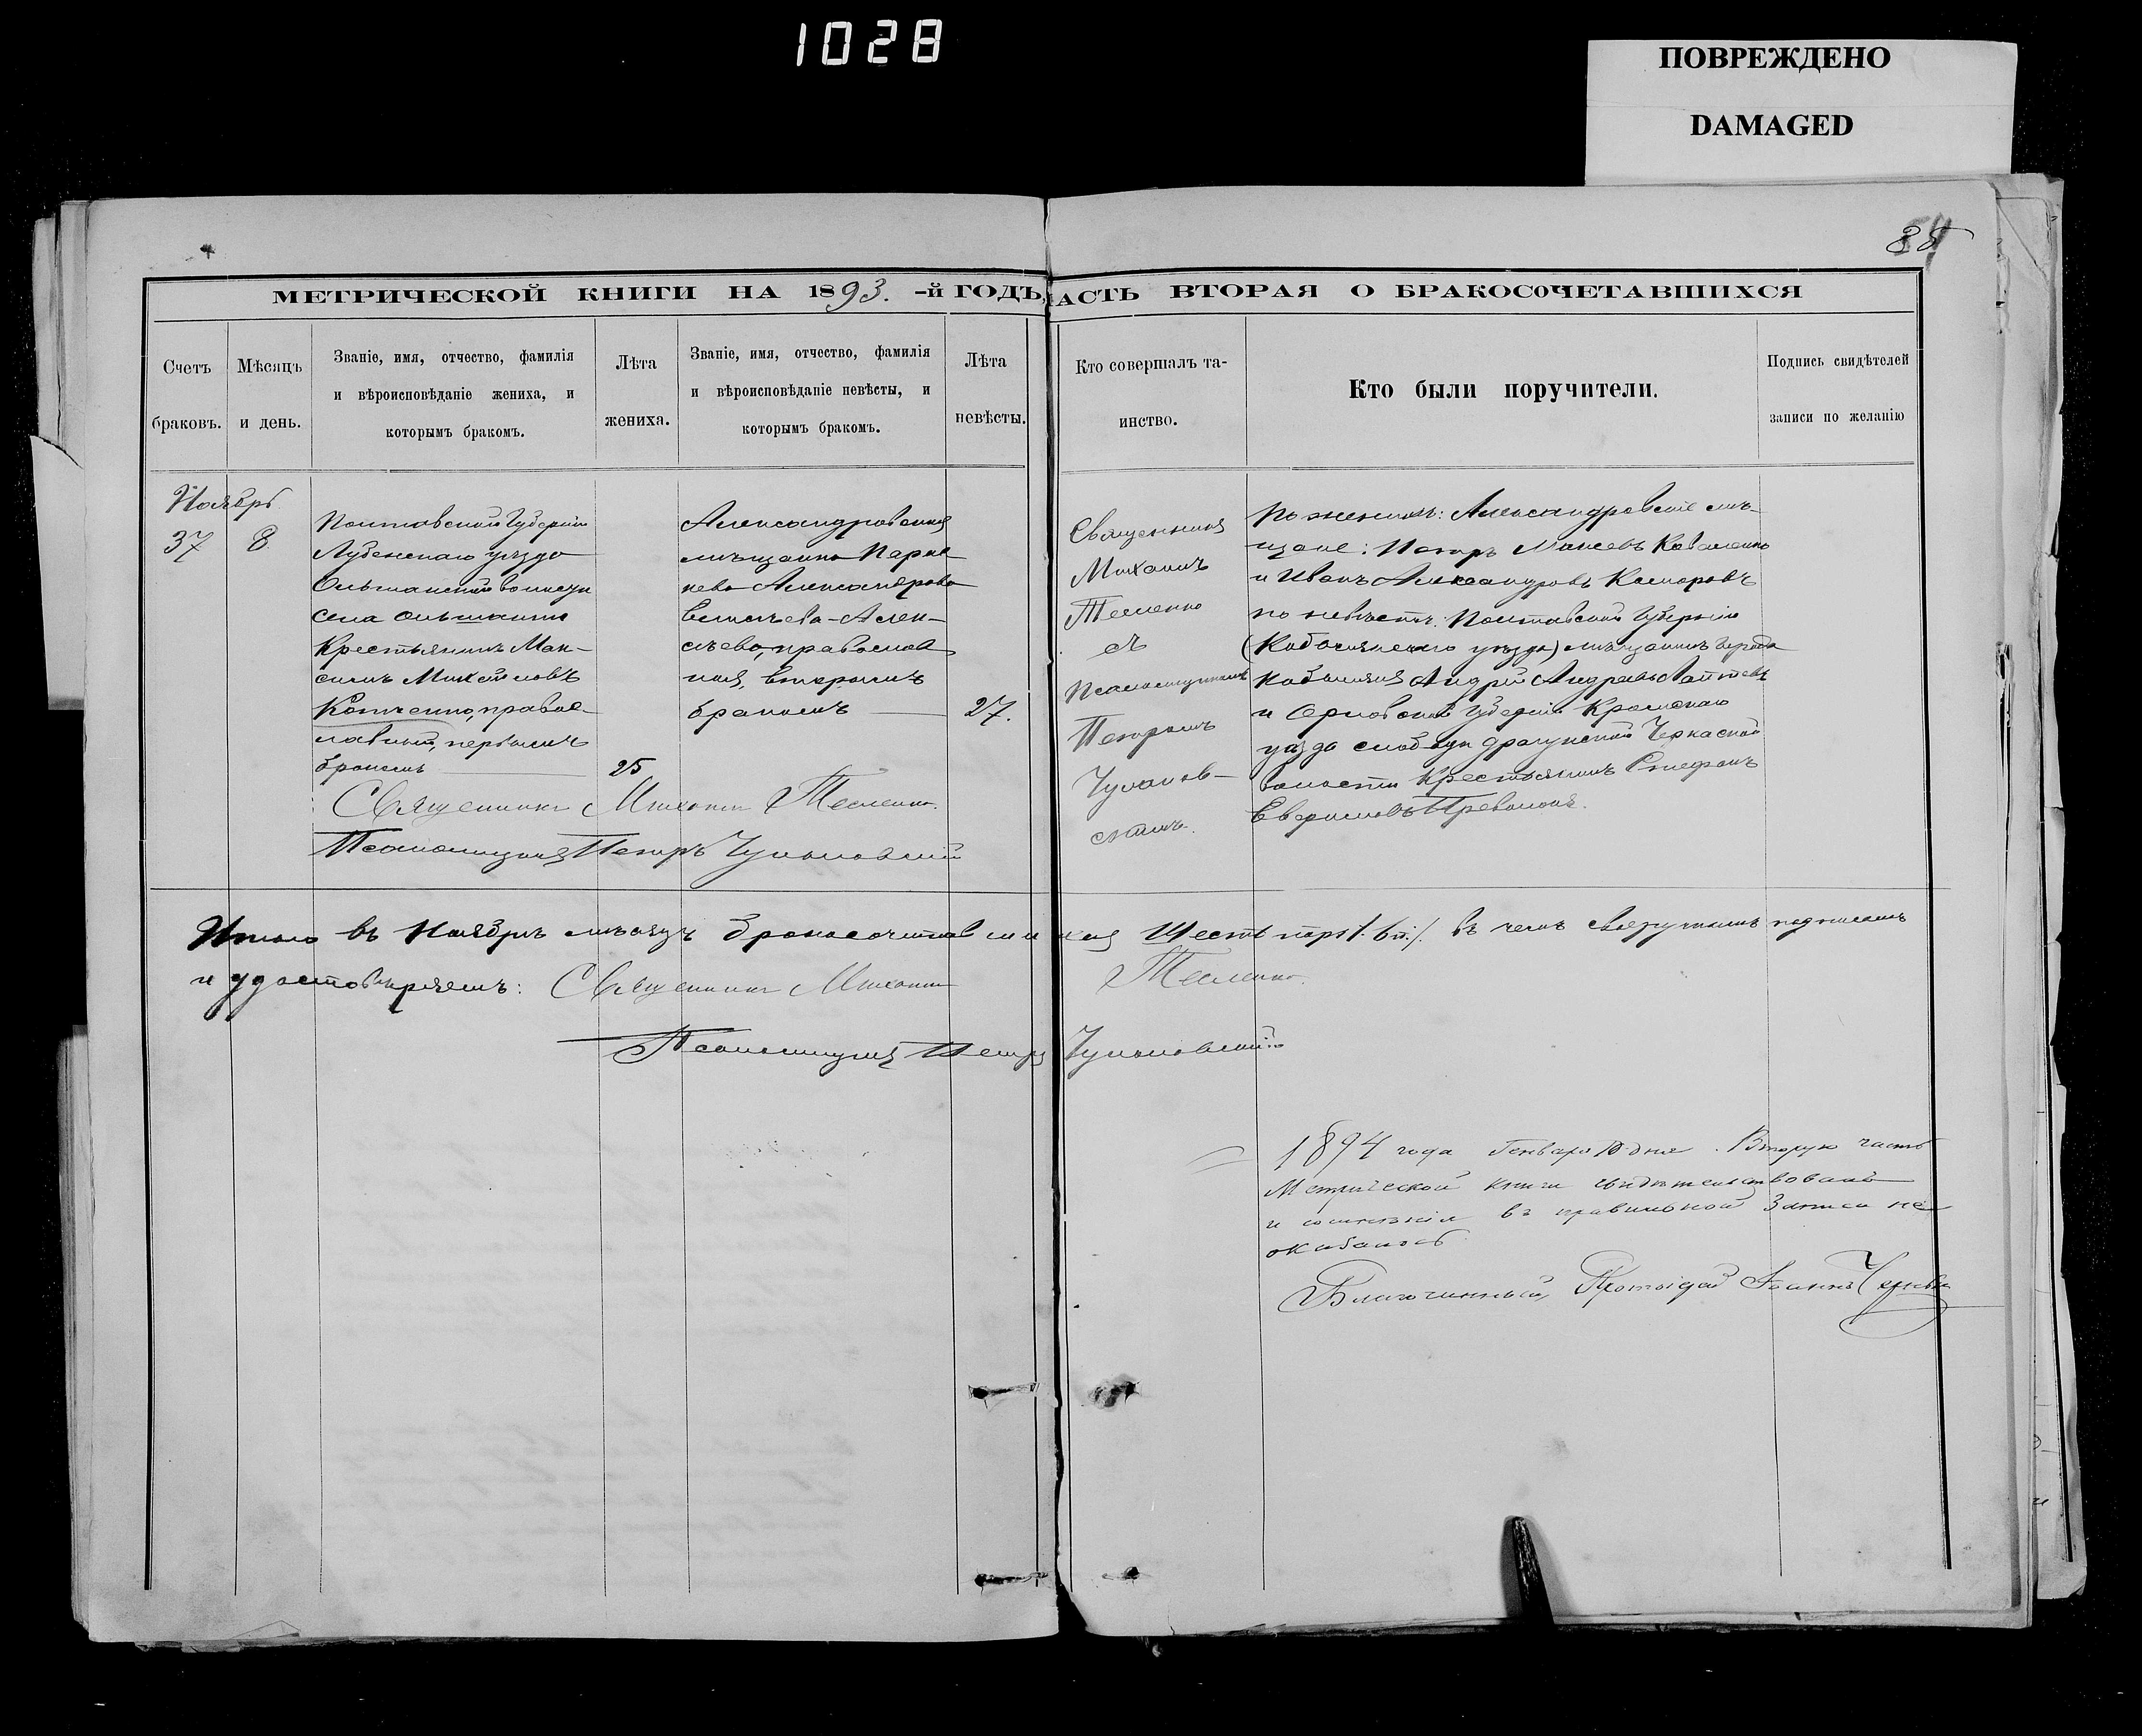 1028
ПОВРЕЖДЕНО
DAMAGED
МЕТРИЧЕСКОЙ КНИГИ НА 1893.-й ГОДЪ
АСТЬ ВТОРАЯ О БРАКОСОЧЕТАВШИХСЯ
Счетъ
браковъ.
Мѣсяцъ
и день.
Званіе, имя, отчество, фамилія
и вѣроисповѣданіе жениха, и
которымъ бракомъ.
Лѣта
жениха.
Званіе, имя, отчество, фамилія
и вѣроисповѣданіе невѣсты, и
которымъ бракомъ.
Лѣта
невѣсты.
Кто совершалъ та-
инство.
Кто были поручители.
Подпись свидѣтелей
записи по желанію
Ноябрь
37
8
Полтавской Губерніи
Лубенскаго уѣзда
Ольшанской волости
села Ольшанки
Крестьянинъ Мак-
симъ Михайловъ
православ-
лавный, первымъ
бракомъ
25
Александровская
мѣщанка
Александрова
православ
ная, вторымъ
бракомъ
27.
Священникъ
Михаилъ
Тесленко
съ
Псаломщикомъ
Петромъ
Чулановскимъ
скимъ.
По женихѣ: Александровскіе мѣ-
щане: Петръ Моисеевъ Коваленко
и Иванъ Александровъ Комаровъ
по невѣстѣ: Полтавской Губерніи
(Кобелякскаго уѣзда) мѣщанинъ города
Кобылякъ Андрей Андреевъ
и Орловской Губерніи Кромскаго
уѣзда слободы Драгунской Черкаской
волости Крестьянинъ Стефанъ
Священникъ Михаилъ Тесленко.
Псаломщикъ Петръ Чулановскій
Итого въ Ноябрѣ мѣсяцѣ бракосочетавшихся Шесть паръ /:6 п:/. въ чемъ подписомъ
и удостовѣряемъ: Священникъ Михаилъ Тесленко.
Псаломщикъ Петръ Чулановскій
1894 года Генваря 10 дня. Вторую часть
Метрической книги свидѣтельствовалъ
и сомнѣнія въ правильной записи не
оказалось
Благочинный, Протоіерей Іоаннъ